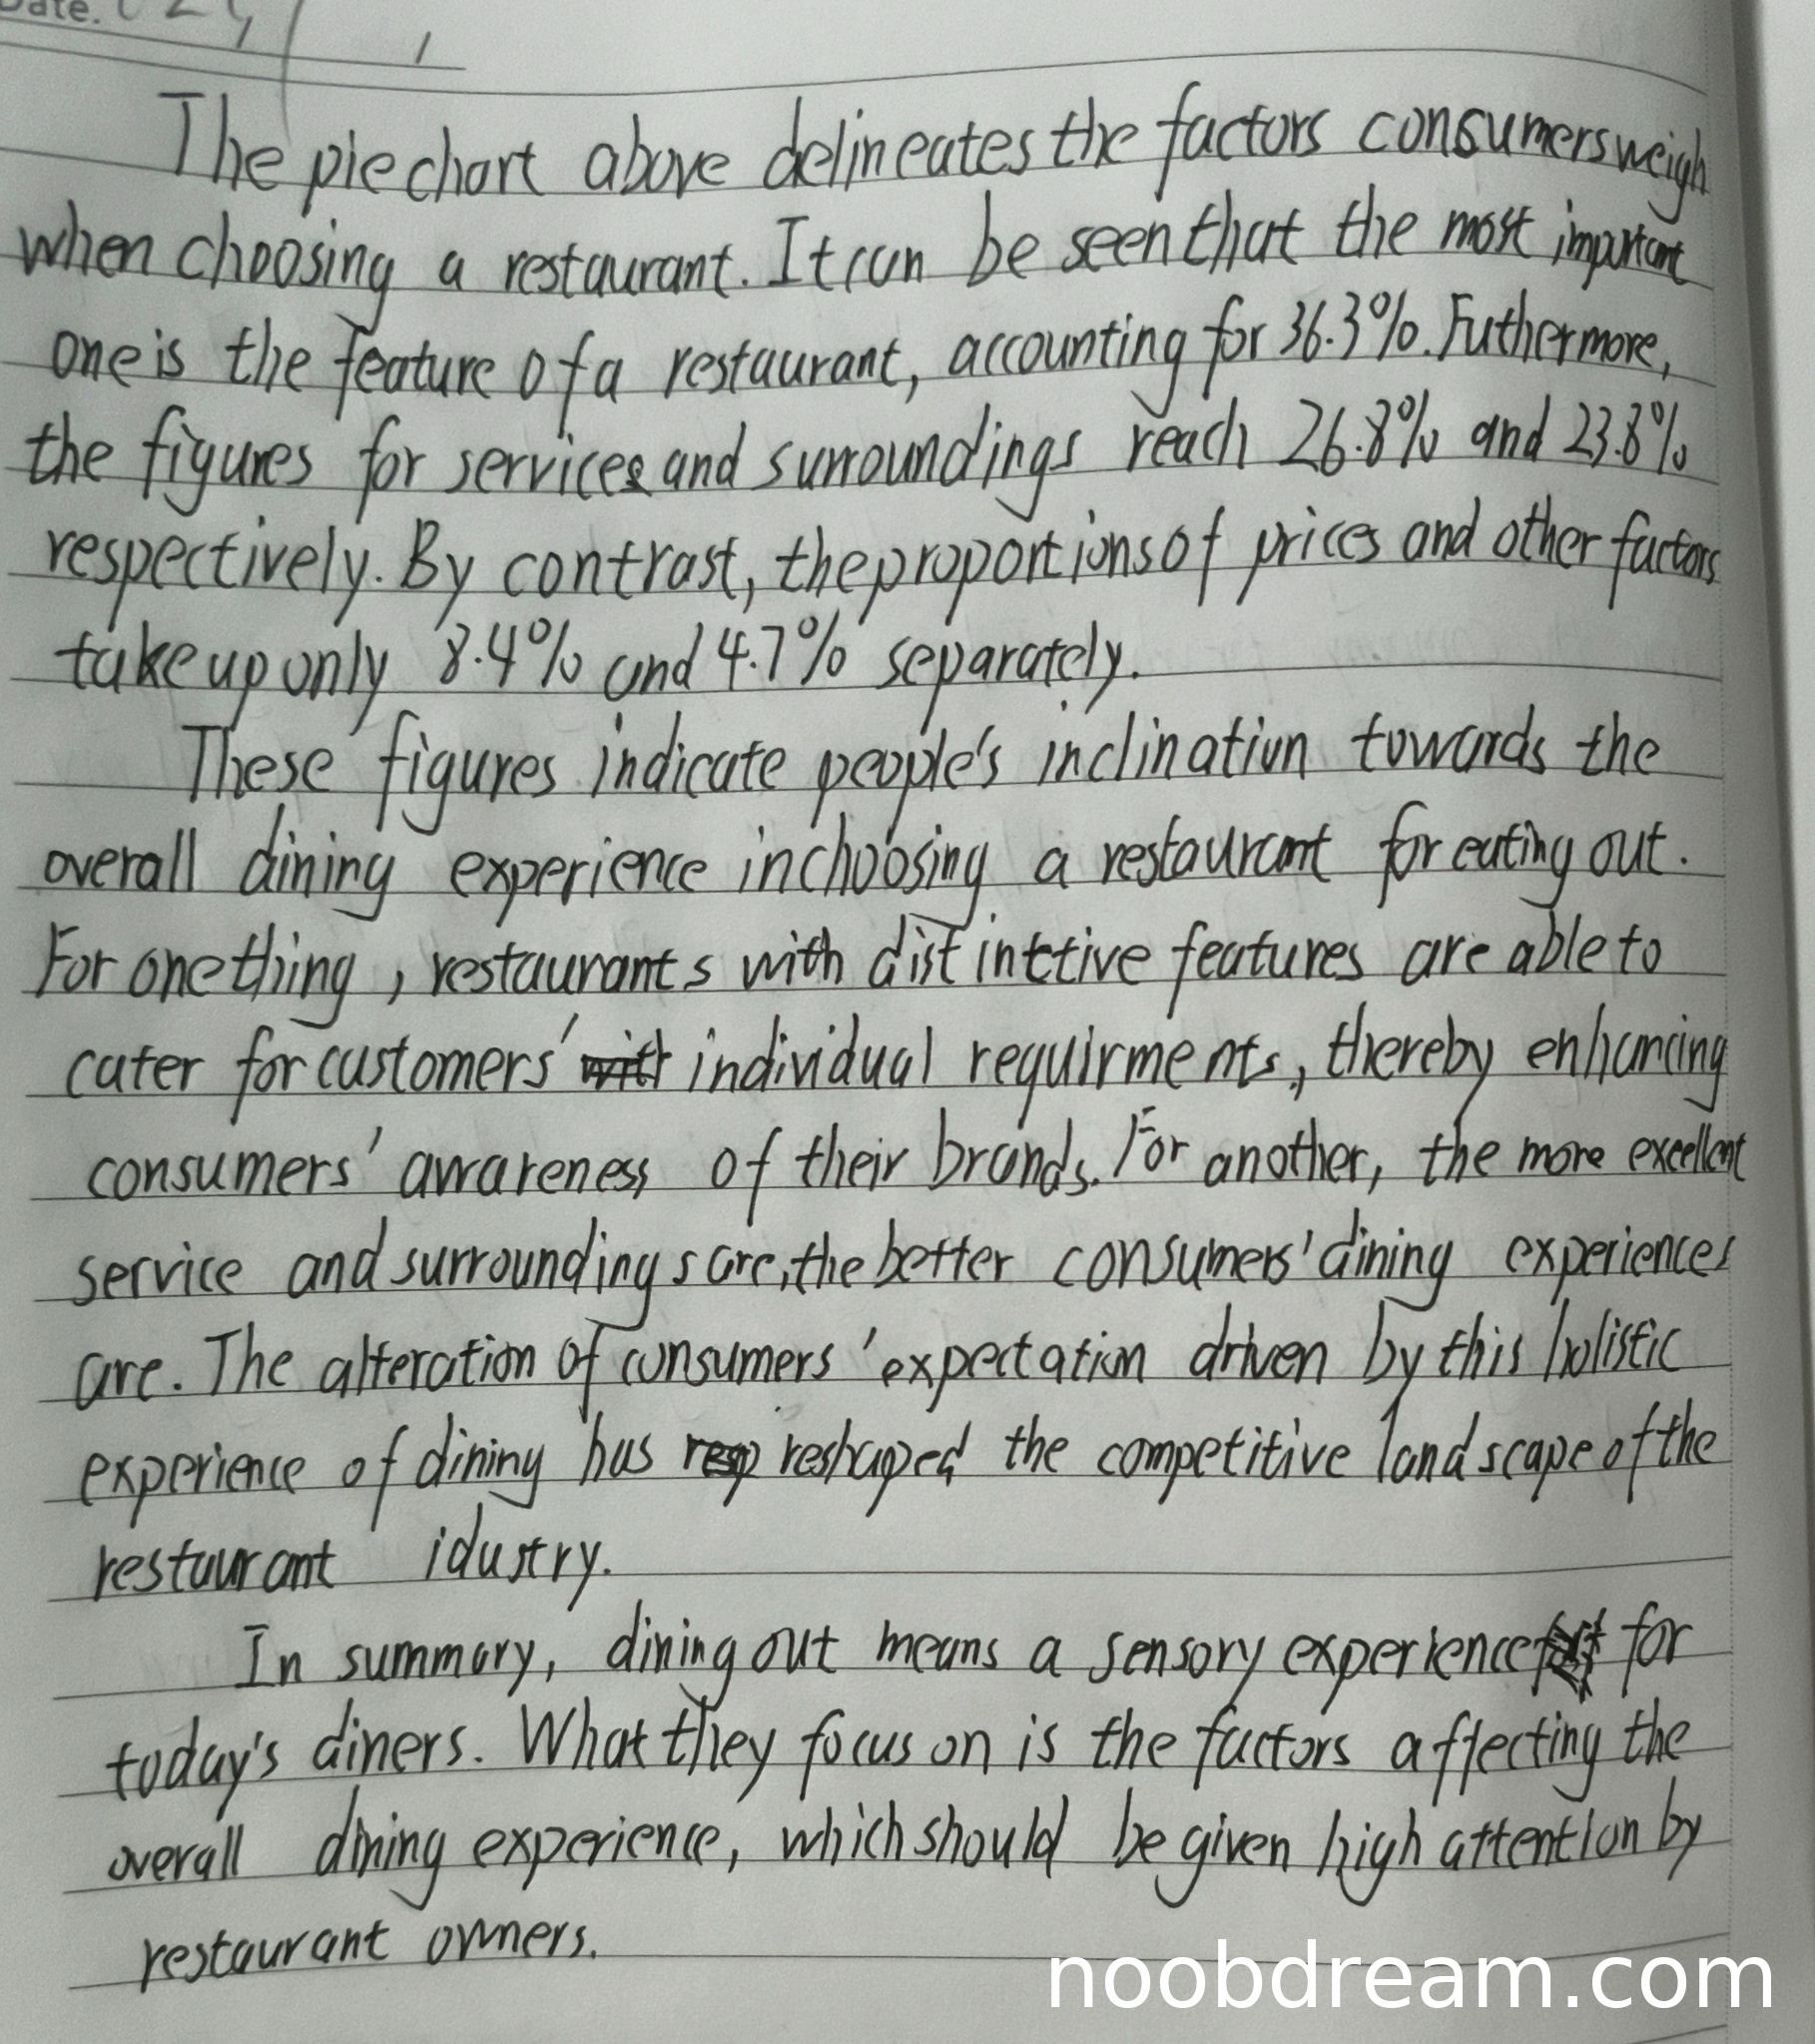 Date.
The pie chart above delineates the factors consumers weigh
when choosing a restaurant. It can be seen that the most important
one is the feature of a restaurant, accounting for 36.3%. Futhermore,
the figures for services and surroundings reach 26.8% and 23.8%
respectively. By contrast, the proportions of prices and other factors
take up only 8.4% and 4.7% separately.
These figures indicate people's inclination towards the
overall dining experience in choosing a restaurant for eating out.
For one thing, restaurants with distinctive features are able to
cater for customers' individual requirments, thereby enhancing
consumers' awareness of their brands. For another, the more excellent
service and surroundings are, the better consumers' dining experiences
are. The alteration of consumers' expectation driven by this holistic
experience of dining has reshaped the competitive landscape of the
restaurant idustry.
In summary, dining out means a sensory experience for
today's diners. What they focus on is the factors affecting the
overall dining experience, which should be given high attention by
restaurant owners.
noobdream.com